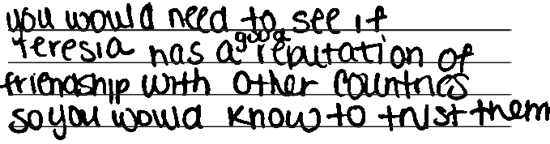 you would need to see if
teresia has a good reputation of
friendship with other countries
so you would know to trust them